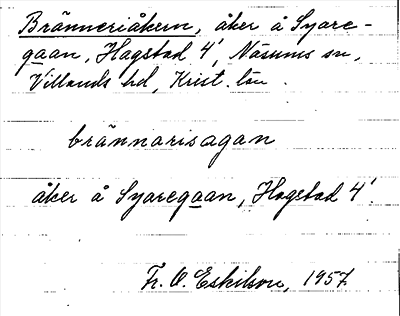 Bränneriåkern, åker å Syare-
gaan, Hagstad 4¹, Näsums sn,
Villands hd, Krist. län.
brännarisagan
åker å Syaregaan, Hagstad 4¹.
Fr. O. Eskilson, 1957